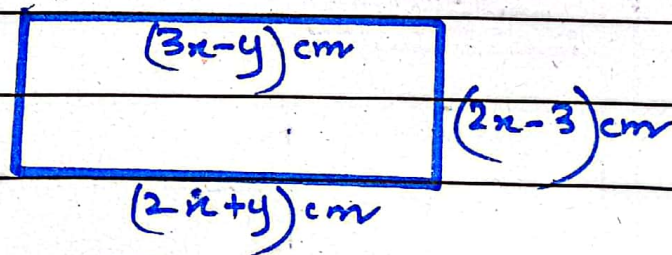 (3x-y) cm
(2x-3) cm
(2x+y) cm